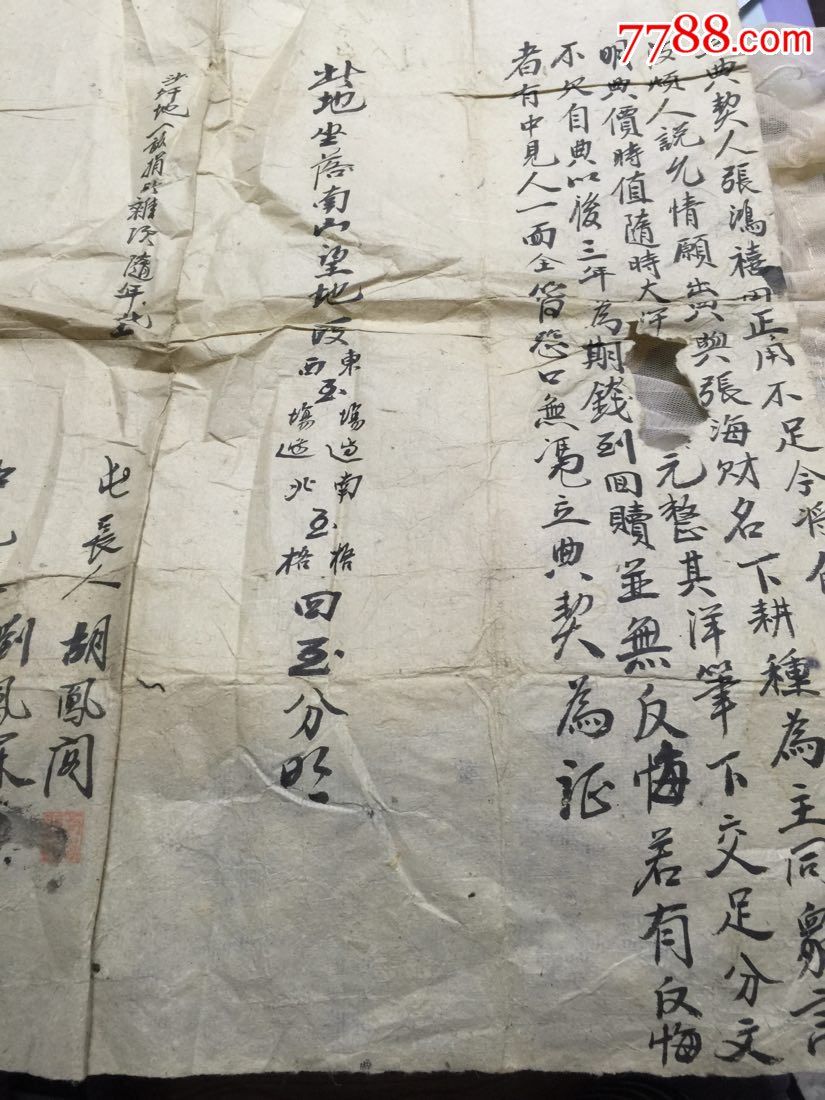 7788.com
典契人張鴻禧因正用不足今將自
煩人説允情願出典與張海财名下耕種為主同衆言
明典價時值隨時大洋 元整其洋筆下交足分文
不欠自典以後三年為期錢到回贖並無反悔若有反悔
者有中見人一面全管恐口無憑立典契為証
此地坐落南山望地段 東至塲邊南至楁 西至塲邊北至楁 四至分明
沙圩地 畝捐以雜項隨年
屯長人 胡鳳阁
劉鳳